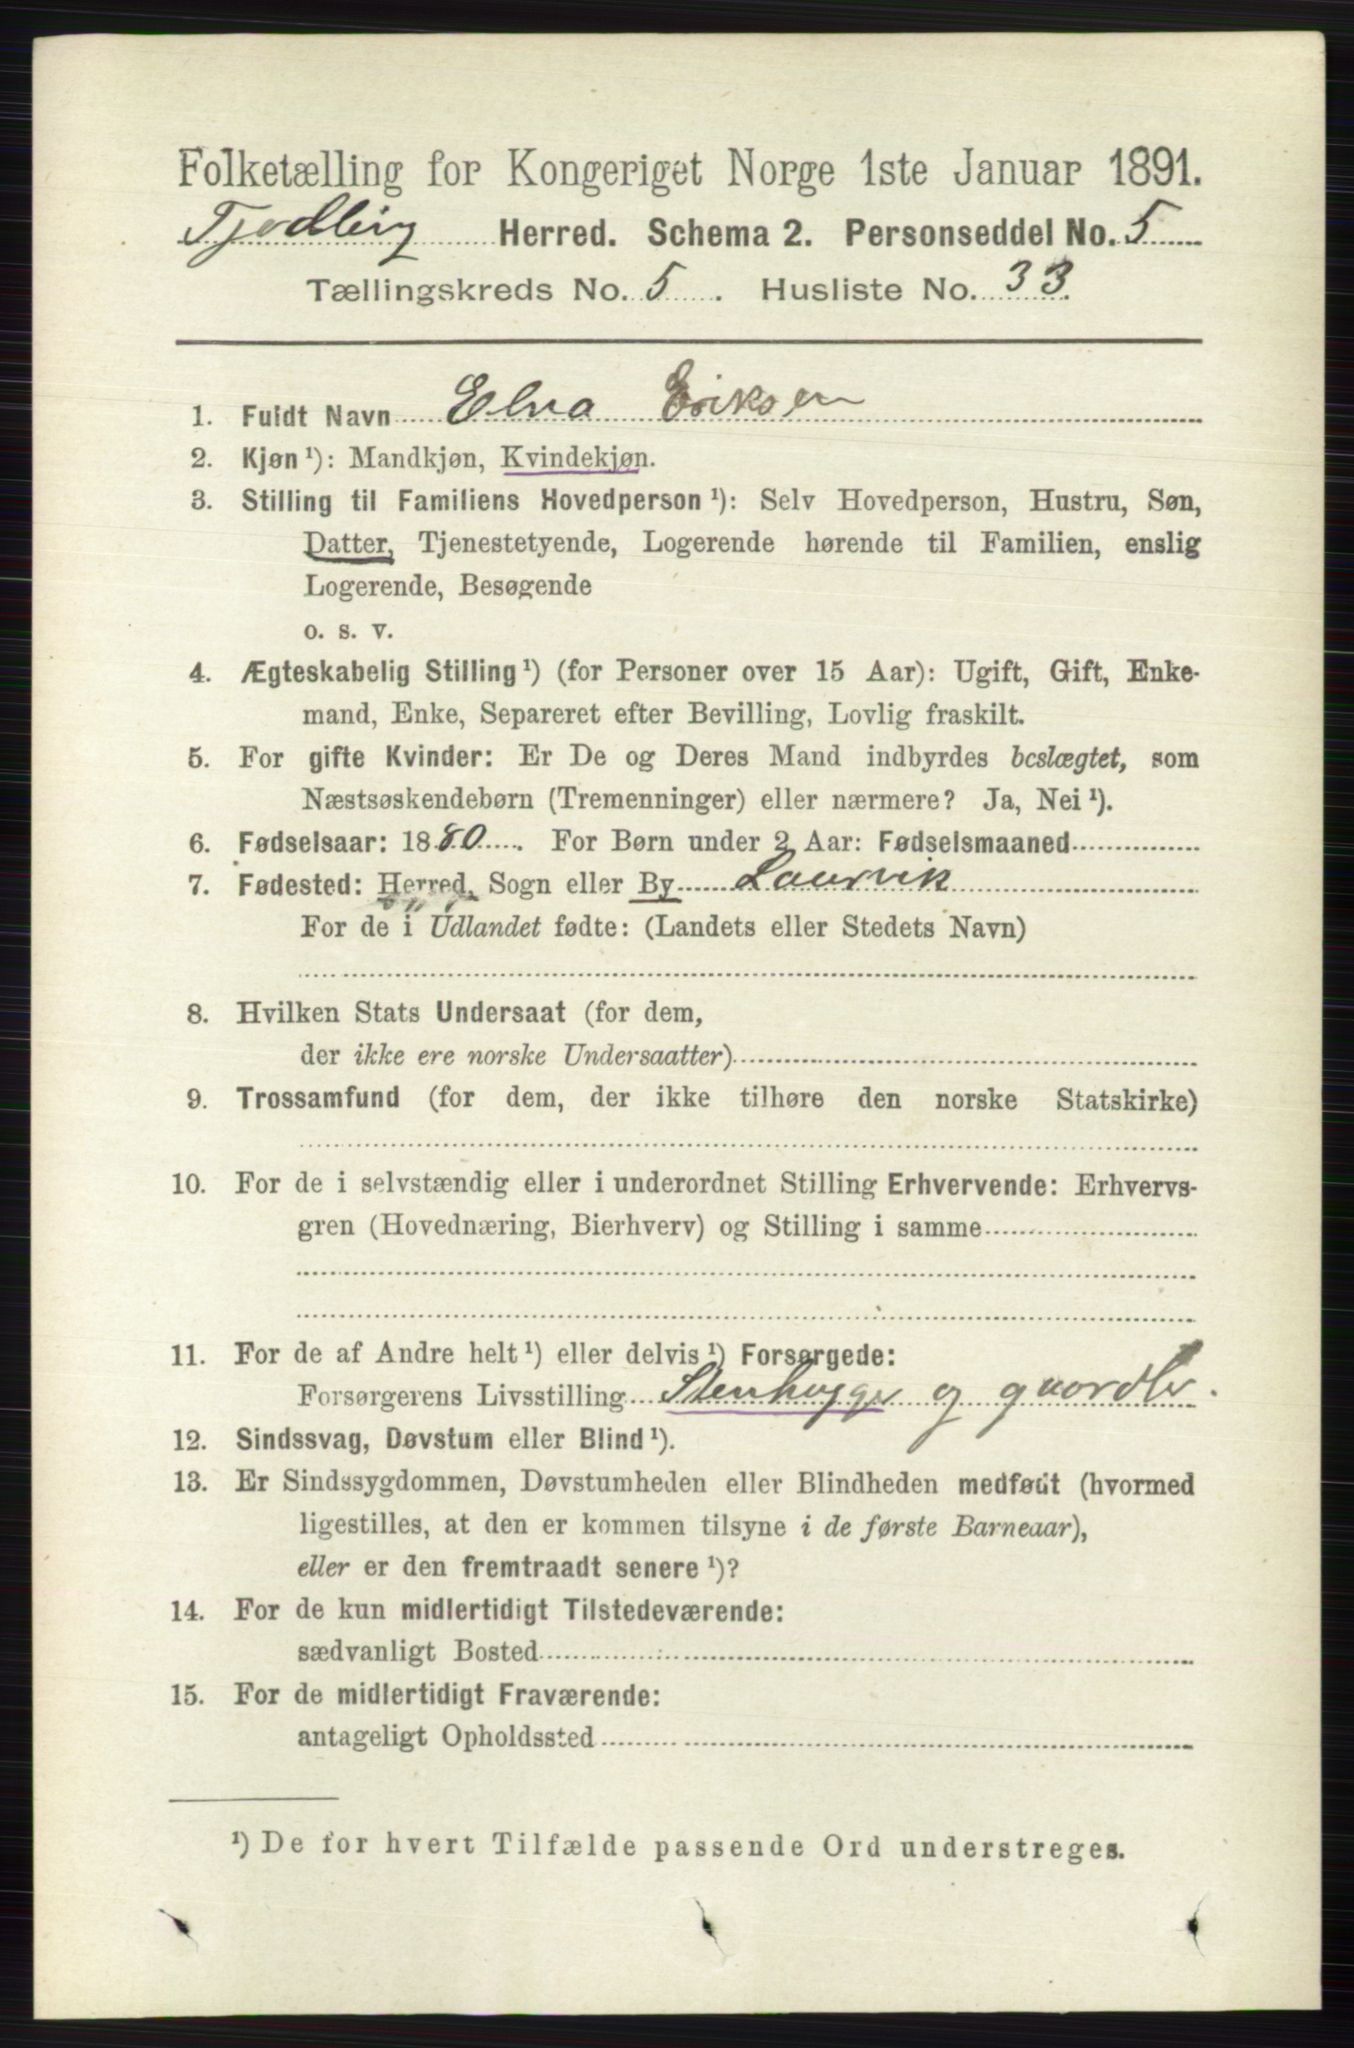 Folketælling for Kongeriget Norge 1ste Januar 1891.
Tjødling Herred. Schema 2. Personseddel No. 5
Tællingskreds No. 5. Husliste No. 33.
1. Fuldt Navn Elna Eriksen
2. Kjøn ¹): Mandkjøn, Kvindekjøn.
3. Stilling til Familiens Hovedperson ¹): Selv Hovedperson, Hustru, Søn,
Datter, Tjenestetyende, Logerende hørende til Familien, enslig
Logerende, Besøgende
o. s. v.
4. Ægteskabelig Stilling ¹) (for Personer over 15 Aar): Ugift, Gift, Enke-
mand, Enke, Separeret efter Bevilling, Lovlig fraskilt.
5. For gifte Kvinder: Er De og Deres Mand indbyrdes beslægtet, som
Næstsøskendebørn (Tremenninger) eller nærmere? Ja, Nei ¹).
6. Fødselsaar: 1880. For Børn under 2 Aar: Fødselsmaaned
7. Fødested: Herred, Sogn eller By Laurvik
For de i Udlandet fødte: (Landets eller Stedets Navn)
8. Hvilken Stats Undersaat (for dem,
der ikke ere norske Undersaatter)
9. Trossamfund (for dem, der ikke tilhøre den norske Statskirke)
10. For de i selvstændig eller i underordnet Stilling Erhvervende: Erhvervs-
gren (Hovednæring, Bierhverv) og Stilling i samme
11. For de af Andre helt ¹) eller delvis ¹) Forsørgede:
Forsørgerens Livsstilling Stenhugger og gaardbr.
12. Sindssvag, Døvstum eller Blind ¹).
13. Er Sindssygdommen, Døvstumheden eller Blindheden medfødt (hvormed
ligestilles, at den er kommen tilsyne i de første Barneaar),
eller er den fremtraadt senere ¹)?
14. For de kun midlertidigt Tilstedeværende:
sædvanligt Bosted
15. For de midlertidigt Fraværende:
antageligt Opholdssted
¹) De for hvert Tilfælde passende Ord understreges.